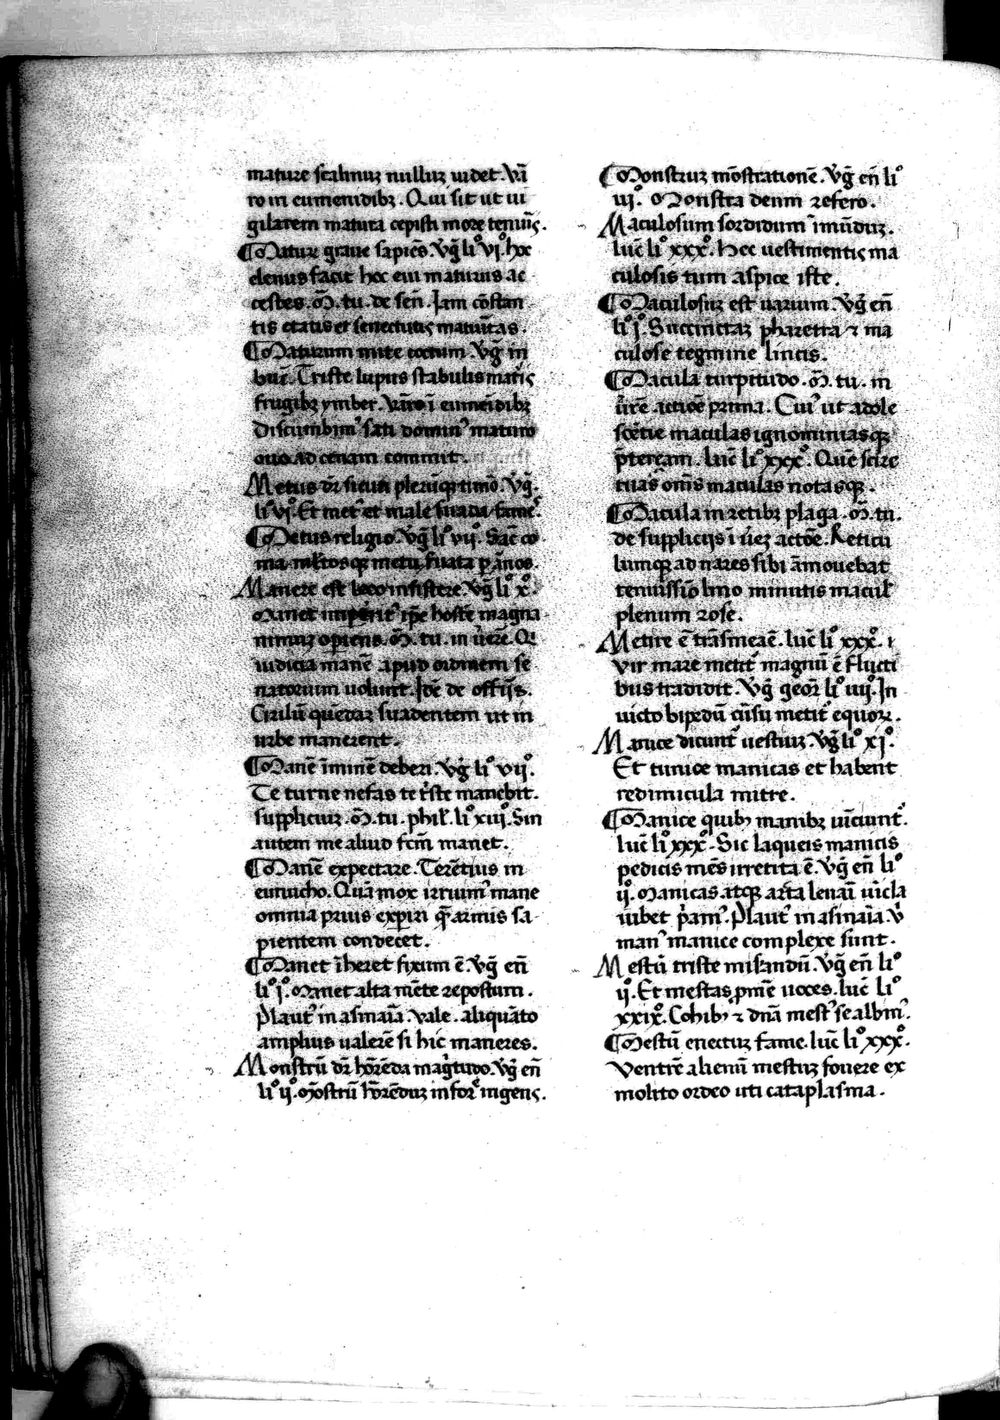 mature scabiuȝ nulluȝ uidet. Va
ro in eumenidibȝ. Qui sit ut ui
gilatem matura cepisti more tenuis.
¶ Matuȝ graue sapiēs. Vg̃ liº viº. hic
elenus facit hoc eui maturus ac
cestes. M̃. tu. de señ. Iam cōstan
tis etatis et senectutis maturitas.
¶ Maturum mite coctum. Vg̃ in
buc̃. Triste lupus stabulis matris
frugibȝ ymber. Varro ī eumenidibȝ
Discumbimꝰ sati dominꝰ maturo
ouo ad cenam committ.
Metus dr̃ sicuti plerūqȝ timor. Vg̃.
liº viº. Et metꝰ et male suada fames.
¶ Metus religio. Vg̃ liº viiº. Sac̃ co
ma multosqȝ metu fuata p ānos.
Manere est loco insistere. Vg̃ liº xº.
Manet imperitꝰ ipse hostē magna
nimuȝ opiens. M̃. tu. in ũere. Q
iudicia manēt apud ordinem se
natorium uolunt. Idē de offiijs.
Ciuilū quēdaȝ suadentem ut in
urbe manerent.
¶ Manē īminē deberi. Vg̃ liº viiº.
Te turne nefas te triste manebit.
supplicuȝ. M̃. tu. phil. liº xiiiº. Sin
autem me aliud fatū manet.
¶ Manē expectare. Terētius in
eunucho. Quā mox irruimꝰ mane
omnia prius expiri q̃ armis sa
pientem condecet.
¶ Manet īheret fixum ē. Vg̃ eñ
liº iº. Manet alta mēte repostum.
Plautꝰ in asinaīa. Vale. aliquāto
amplius ualerē si hic maneres.
Monstrū dr̃ horēda magitudo. Vg̃ eñ
liº iiº. Mōstrū horēduȝ informe ingens.
¶ Monstruȝ mōstrationē. Vg̃ eñ liº
viº. Monstra deum refero.
Maculosum sordidum īmūduȝ.
luc̃ liº xxxº. Hec uestimentis ma
culosis tum aspice iste.
¶ Maculosuȝ est uarium. Vg̃ eñ
liº iº. Succinctaȝ pharetra ⁊ ma
culose tegmine lincis.
¶ Macula turpitudo. M̃. tu. in
ũrē actioē prima. Cuiꝰ ut adole
scētie maculas ignominiasqȝ
p̃teream. luc̃ liº xxxº. Quē scire
tuas oms maculas notasqȝ.
¶ Macula in retibȝ plaga. M̃. tu.
de supplicijs ī ũeȝ actoē. Reticu
lumqȝ ad nares sibi āmouebat
tenuissiō lino minutis macul
plenum rose.
Metire ē trāsmeāē. luc̃ liº xxxº.
vir mare metitꝰ magnū ē flucti
bus tradidit. Vg̃ geor̃ liº iiiiº. In
uicto bipedū cursu metitꝰ equorȝ.
Manice dicuntꝰ uestiuȝ. Vg̃ liº xiº.
Et tunice manicas et habent
redimicula mitre.
¶ Manice quibȝ manibȝ uiciuntꝰ.
luc̃ liº xxxº. Sic laqueis manicis
pedicis mēs irretita ē. Vg̃ eñ liº
iiº. Manicas atqȝ arta leuari uicla
iubet p̃amꝰ. Plautꝰ in asinaīa v̓
manꝰ manice complexe sunt.
Mestū triste miserandū. Vg̃ eñ liº
iiº. Et mestas pmē uoces. luc̃ liº
xxixº. Cohibȝ ⁊ dnā mestꝰ se albinꝰ.
¶ Mestū enectuȝ fame. luc̃ liº xxxº.
Ventrē alienū mestuȝ fouere ex
molito ordeo uti cataplasma.